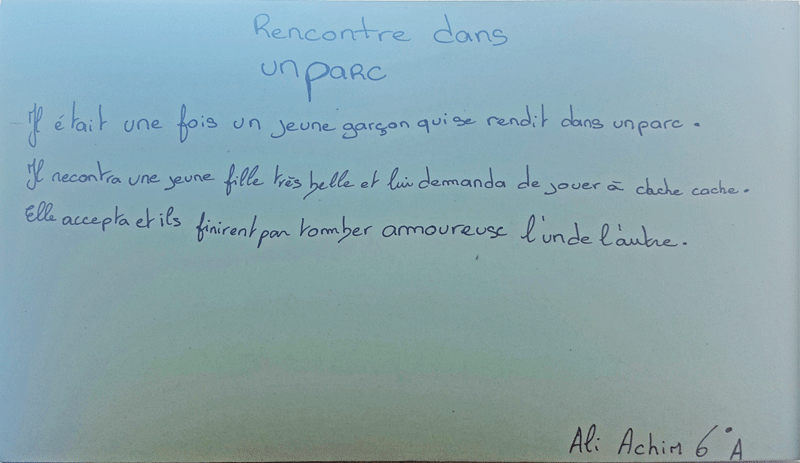 Rencontre dans
un parc
Il était une fois un jeune garçon qui se rendit dans un parc.
Il recontra une jeune fille très belle et lui demanda de jouer à cache cache.
Elle accepta et ils finirent par tomber amoureuse l'un de l'autre.
Ali Achim 6° A